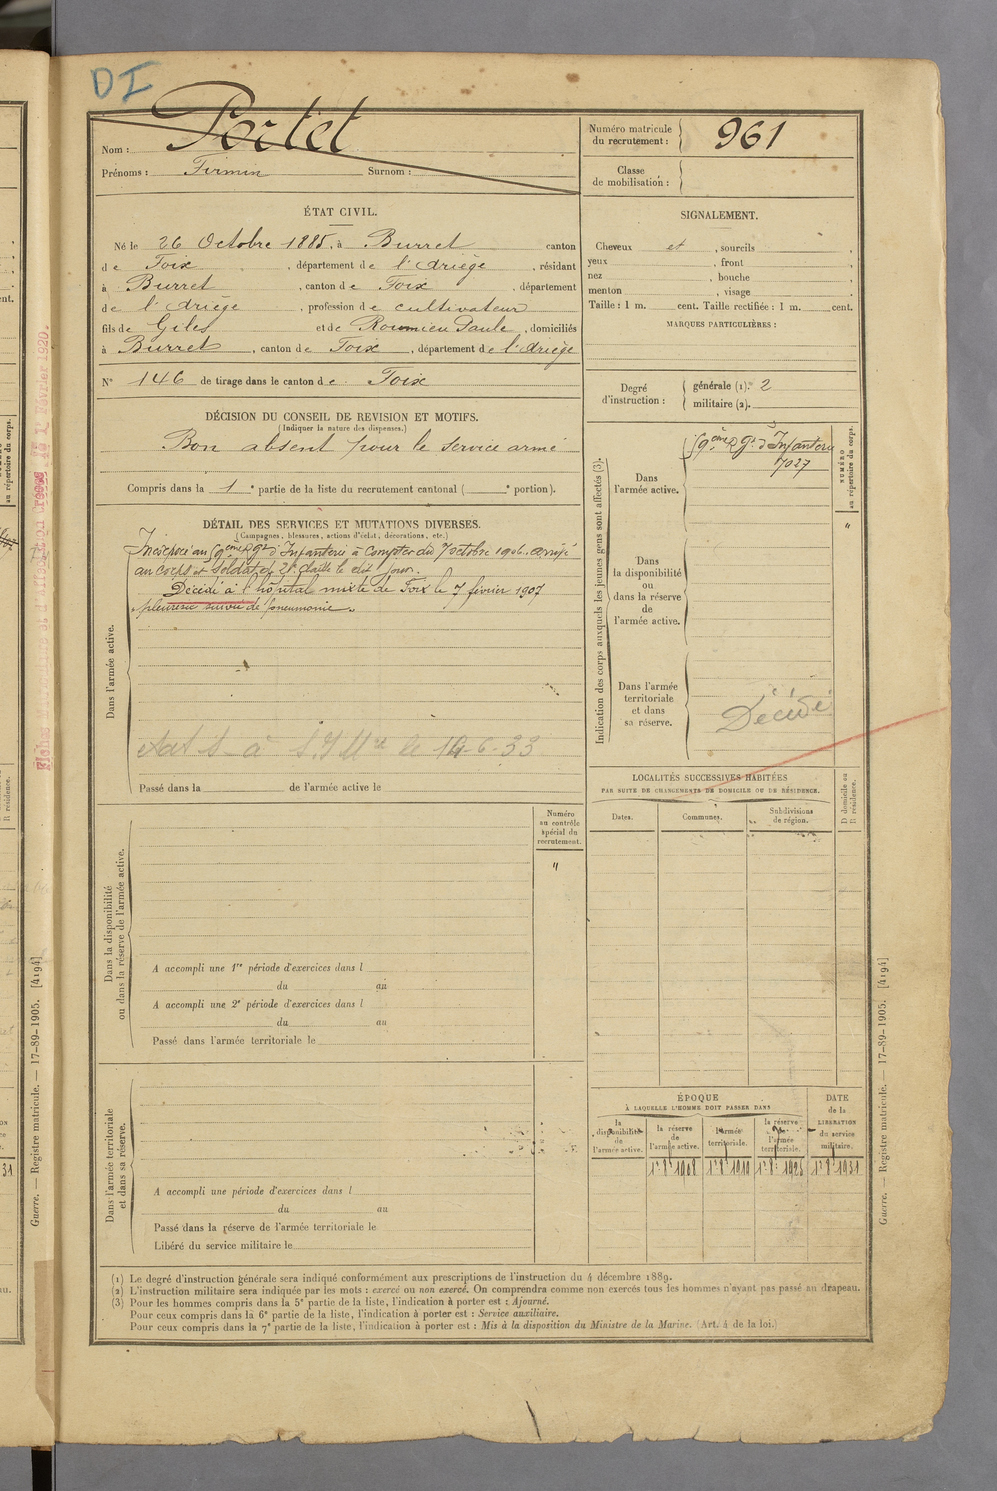 DI
Nom : Portet
Prénoms : Firmin Surnom :
Numéro matricule du recrutement : 961
Classe de mobilisation :
ÉTAT CIVIL.
Né le 26 Octobre 1885, à Burret canton
de Foix, département de l'Ariège, résidant
à Burret, canton de Foix, département
de l'Ariège, profession de cultivateur
fils de Giles et de Roumieu Paule, domiciliés
à Burret, canton de Foix, département de l'Ariège
N° 146 de tirage dans le canton de Foix
DÉCISION DU CONSEIL DE REVISION ET MOTIFS.
(Indiquer la nature des dispenses.)
Bon absent pour le service armé
Compris dans la 1e partie de la liste du recrutement cantonal (e portion).
DÉTAIL DES SERVICES ET MUTATIONS DIVERSES.
(Campagnes, blessures, actions d'éclat, décorations, etc.)
Incorporé au 59ème Rgt d'Infanterie à compter du 7 octobre 1906. arrivé
au corps et soldat de 2e classe le dit jour.
Décédé à l'hôpital mixte de Foix le 7 février 1907
pleurésie suivie de pneumonie.
Dans l'armée active.
le 14-6-33
Passé dans la de l'armée active le
Numéro au contrôle spécial du recrutement.
"
Dans la disponibilité ou dans la réserve de l'armée active.
A accompli une 1re période d'exercices dans l
du au
A accompli une 2e période d'exercices dans l
du au
Passé dans l'armée territoriale le
Dans l'armée territoriale et dans sa réserve.
A accompli une période d'exercices dans l
du au
Passé dans la réserve de l'armée territoriale le
Libéré du service militaire le
SIGNALEMENT.
Cheveux et, sourcils,
yeux, front,
nez, bouche,
menton, visage.
Taille : 1 m. cent. Taille rectifiée : 1 m. cent.
MARQUES PARTICULIÈRES :
Degré d'instruction :
générale (1). 2
militaire (2).
Indication des corps auxquels les jeunes gens sont affectés (3).
NUMÉRO au répertoire du corps.
"
Dans l'armée active.
59ème Rgt d'Infanterie
7027
Dans la disponibilité ou dans la réserve de l'armée active.
Dans l'armée territoriale et dans sa réserve.
Décédé
LOCALITÉS SUCCESSIVES HABITÉES
PAR SUITE DE CHANGEMENTS DE DOMICILE OU DE RÉSIDENCE.
D domicile ou R résidence.
Dates. Communes. Subdivisions de région.
ÉPOQUE
À LAQUELLE L'HOMME DOIT PASSER DANS
DATE de la LIBÉRATION du service militaire.
la disponibilité de l'armée active.
la réserve de l'armée active.
l'armée territoriale.
la réserve de l'armée territoriale.
1r 8e 1908 1r 8e 1919 1r 8e 1925 1r 8e 1931
(1) Le degré d'instruction générale sera indiqué conformément aux prescriptions de l'instruction du 4 décembre 1889.
(2) L'instruction militaire sera indiquée par les mots : exercé ou non exercé. On comprendra comme non exercés tous les hommes n'ayant pas passé au drapeau.
(3) Pour les hommes compris dans la 5e partie de la liste, l'indication à porter est : Ajourné.
Pour ceux compris dans la 6e partie de la liste, l'indication à porter est : Service auxiliaire.
Pour ceux compris dans la 7e partie de la liste, l'indication à porter est : Mis à la disposition du Ministre de la Marine. (Art. 4 de la loi.)
Guerre. — Registre matricule. — 17-89-1905. [4194]
Guerre. — Registre matricule. — 17-89-1905. [4194]